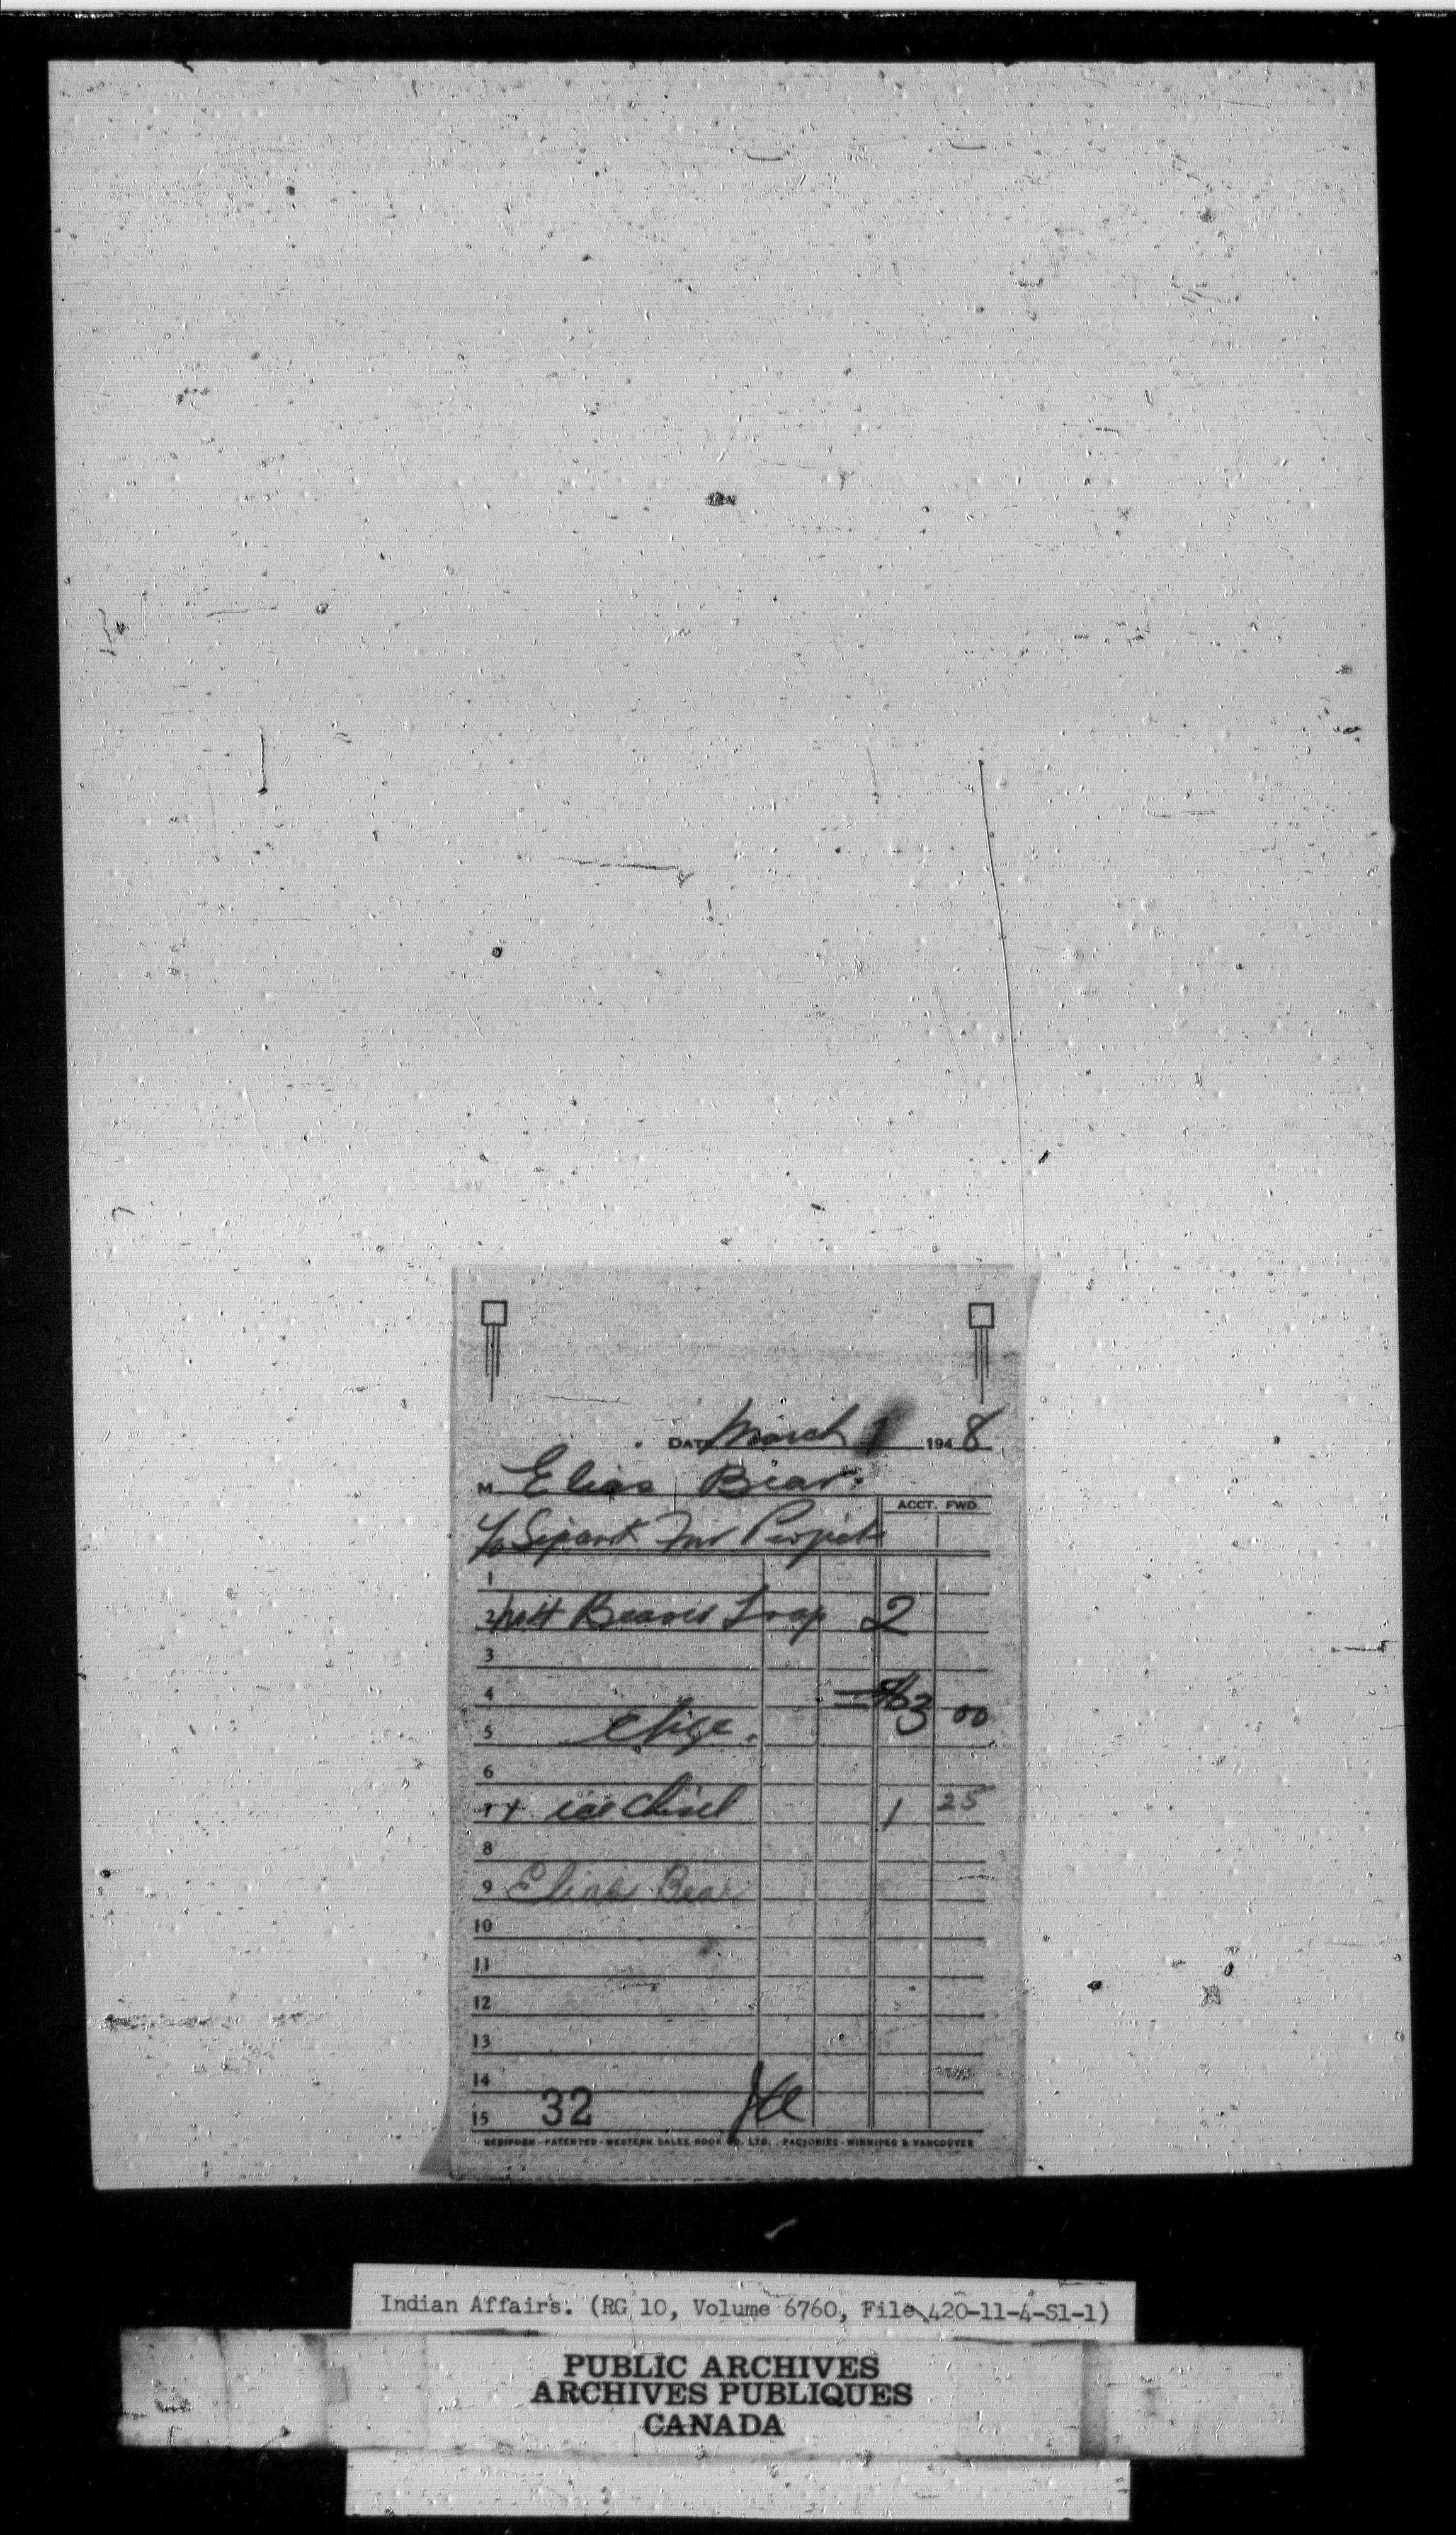 DATE March 1 1948
M Elias Bear.
ACCT. FWD.
c/o Sipanok Fur Project
1
2 No4 Beaver Trap 2
3
4
$63 00
5
6
7 1 ice Chisel 1 25
8
9 Elias Bear
10
11
12
13
14
15 32
REDIFORM - PATENTED - WESTERN SALES BOOK CO. LTD. FACTORIES - WINNIPEG & VANCOUVER
Indian Affairs. (RG 10, Volume 6760, File 420-11-4-S1-1)
PUBLIC ARCHIVES
ARCHIVES PUBLIQUES
CANADA